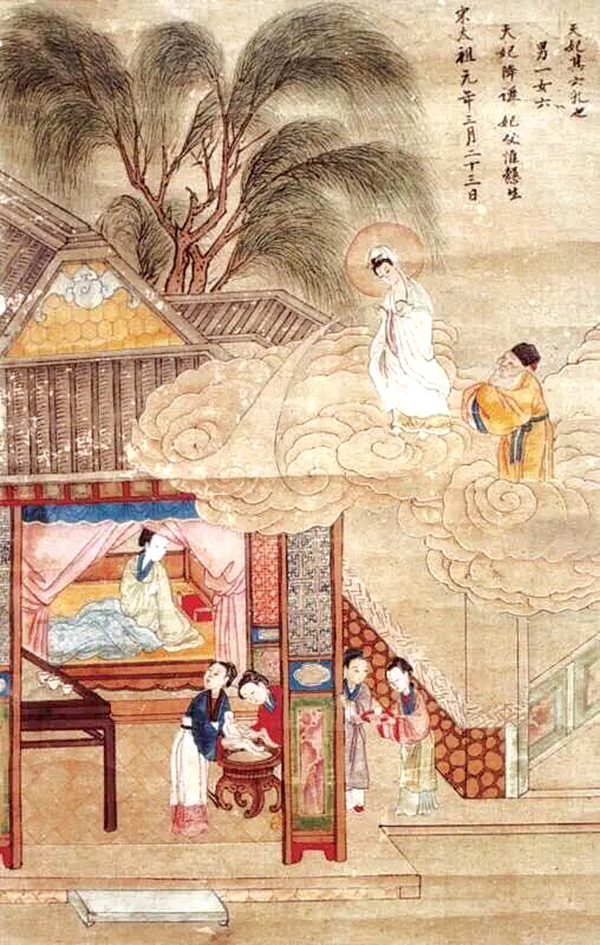 宋太祖元年三月二十三日
天妃降誕妃父惟慤生
男一女六
天妃其六乳也